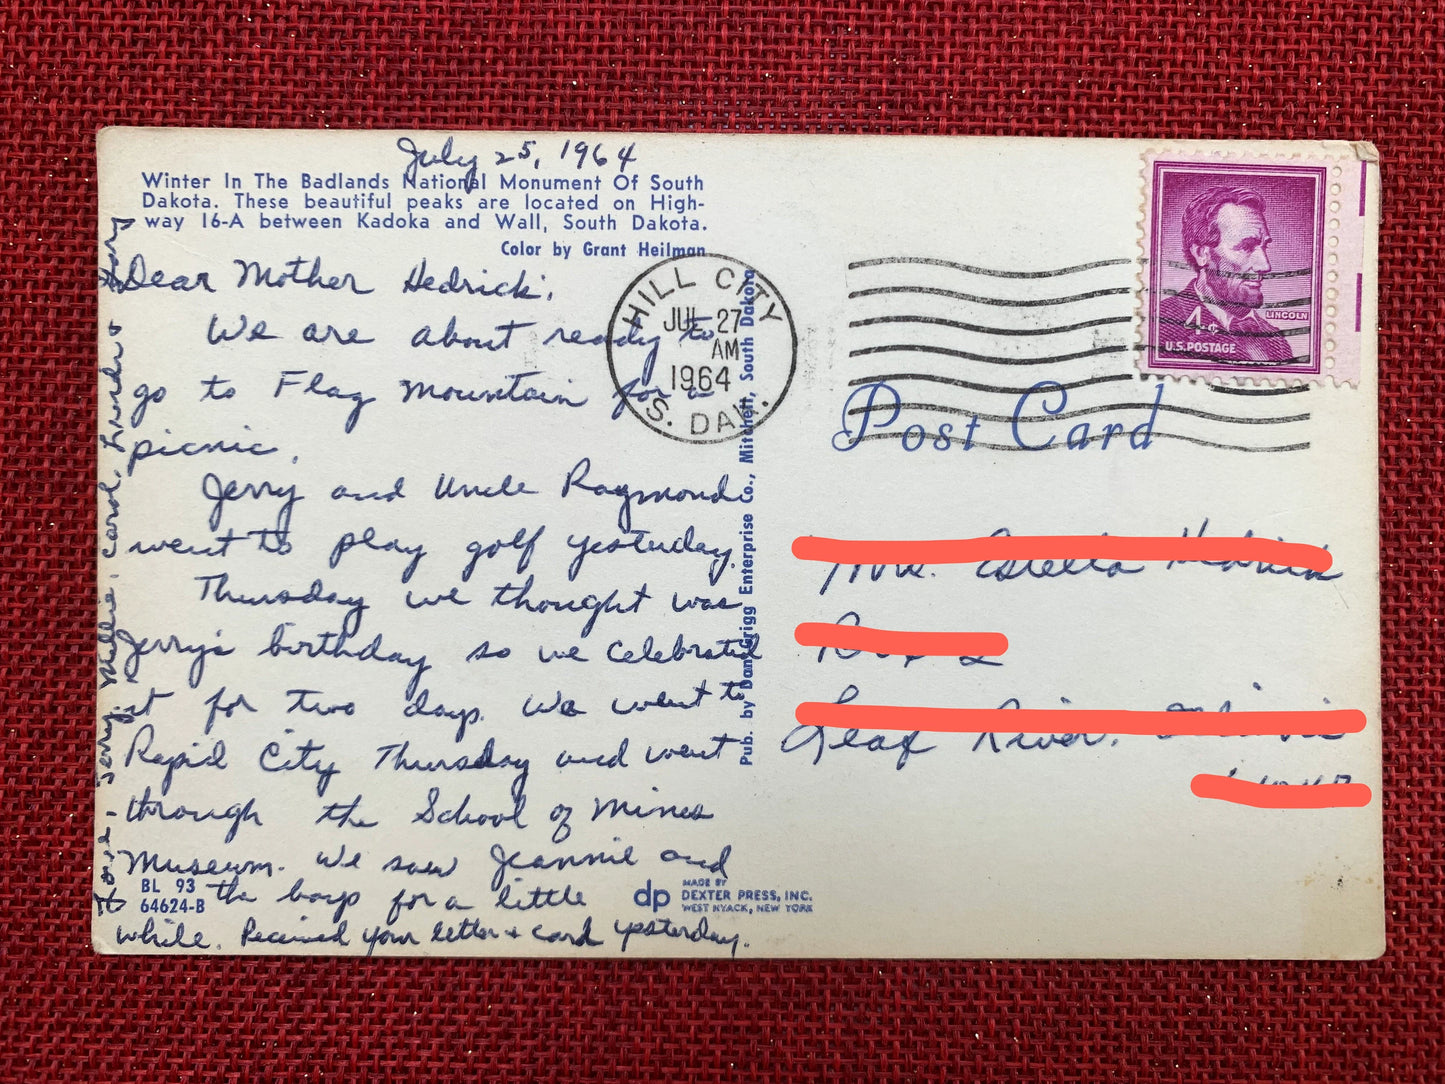 July 25, 1964
Winter In The Badlands National Monument Of South
Dakota. These beautiful peaks are located on High-
way 16-A between Kadoka and Wall, South Dakota.
Color by Grant Heilman
Dear Mother Hedrick,
We are about ready to
go to Flag Mountain for a
picnic.
Jerry and Uncle Raymond
went to play golf yesterday.
Thursday we thought was
Jerry's birthday so we celebrated
it for two days. We went to
Rapid City Thursday and went
through the School of Mines
Museum. We saw Jeannie and
the boys for a little
while. Received your letter + card yesterday.
Love, Jerry, Millie, Carol,
BL 93
64624-B
dp
MADE BY
DEXTER PRESS, INC.
WEST NYACK, NEW YORK
Pub. by Enterprise Co., Mitchell, South Dakota
HILL CITY
JUL 27
AM
1964
S. DAK.
4¢
LINCOLN
U.S. POSTAGE
Post Card